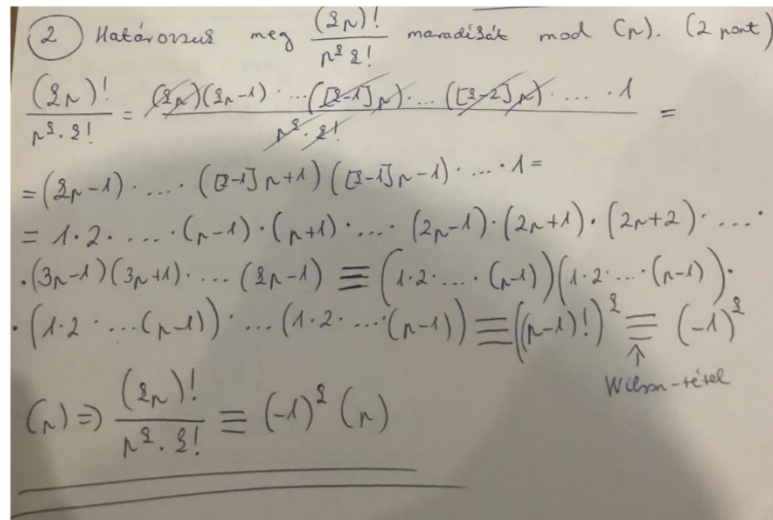 ② Határozzuk meg (kp)!/(p^k k!) maradékát mod (p). (2 pont)
(kp)!/(p^k · k!) = (kp)(kp-1) · ... ([k-1]p) · ... ([k-2]p) · ... · 1/(p^k · k!) =
= (kp-1) · ... · ([k-1]p+1) ([k-1]p-1) · ... · 1 =
= 1 · 2 · ... · (p-1) · (p+1) · ... · (2p-1) · (2p+1) · (2p+2) · ... ·
· (3p-1)(3p+1) · ... (kp-1) ≡ (1·2· ... · (p-1)) (1·2· ... · (p-1)) ·
· (1·2 · ... (p-1)) · ... (1·2 · ... · (p-1)) ≡ ((p-1)!)^k ≡ (-1)^k
↑
Wilson-tétel
(p) ⇒ (kp)!/(p^k · k!) ≡ (-1)^k (p)